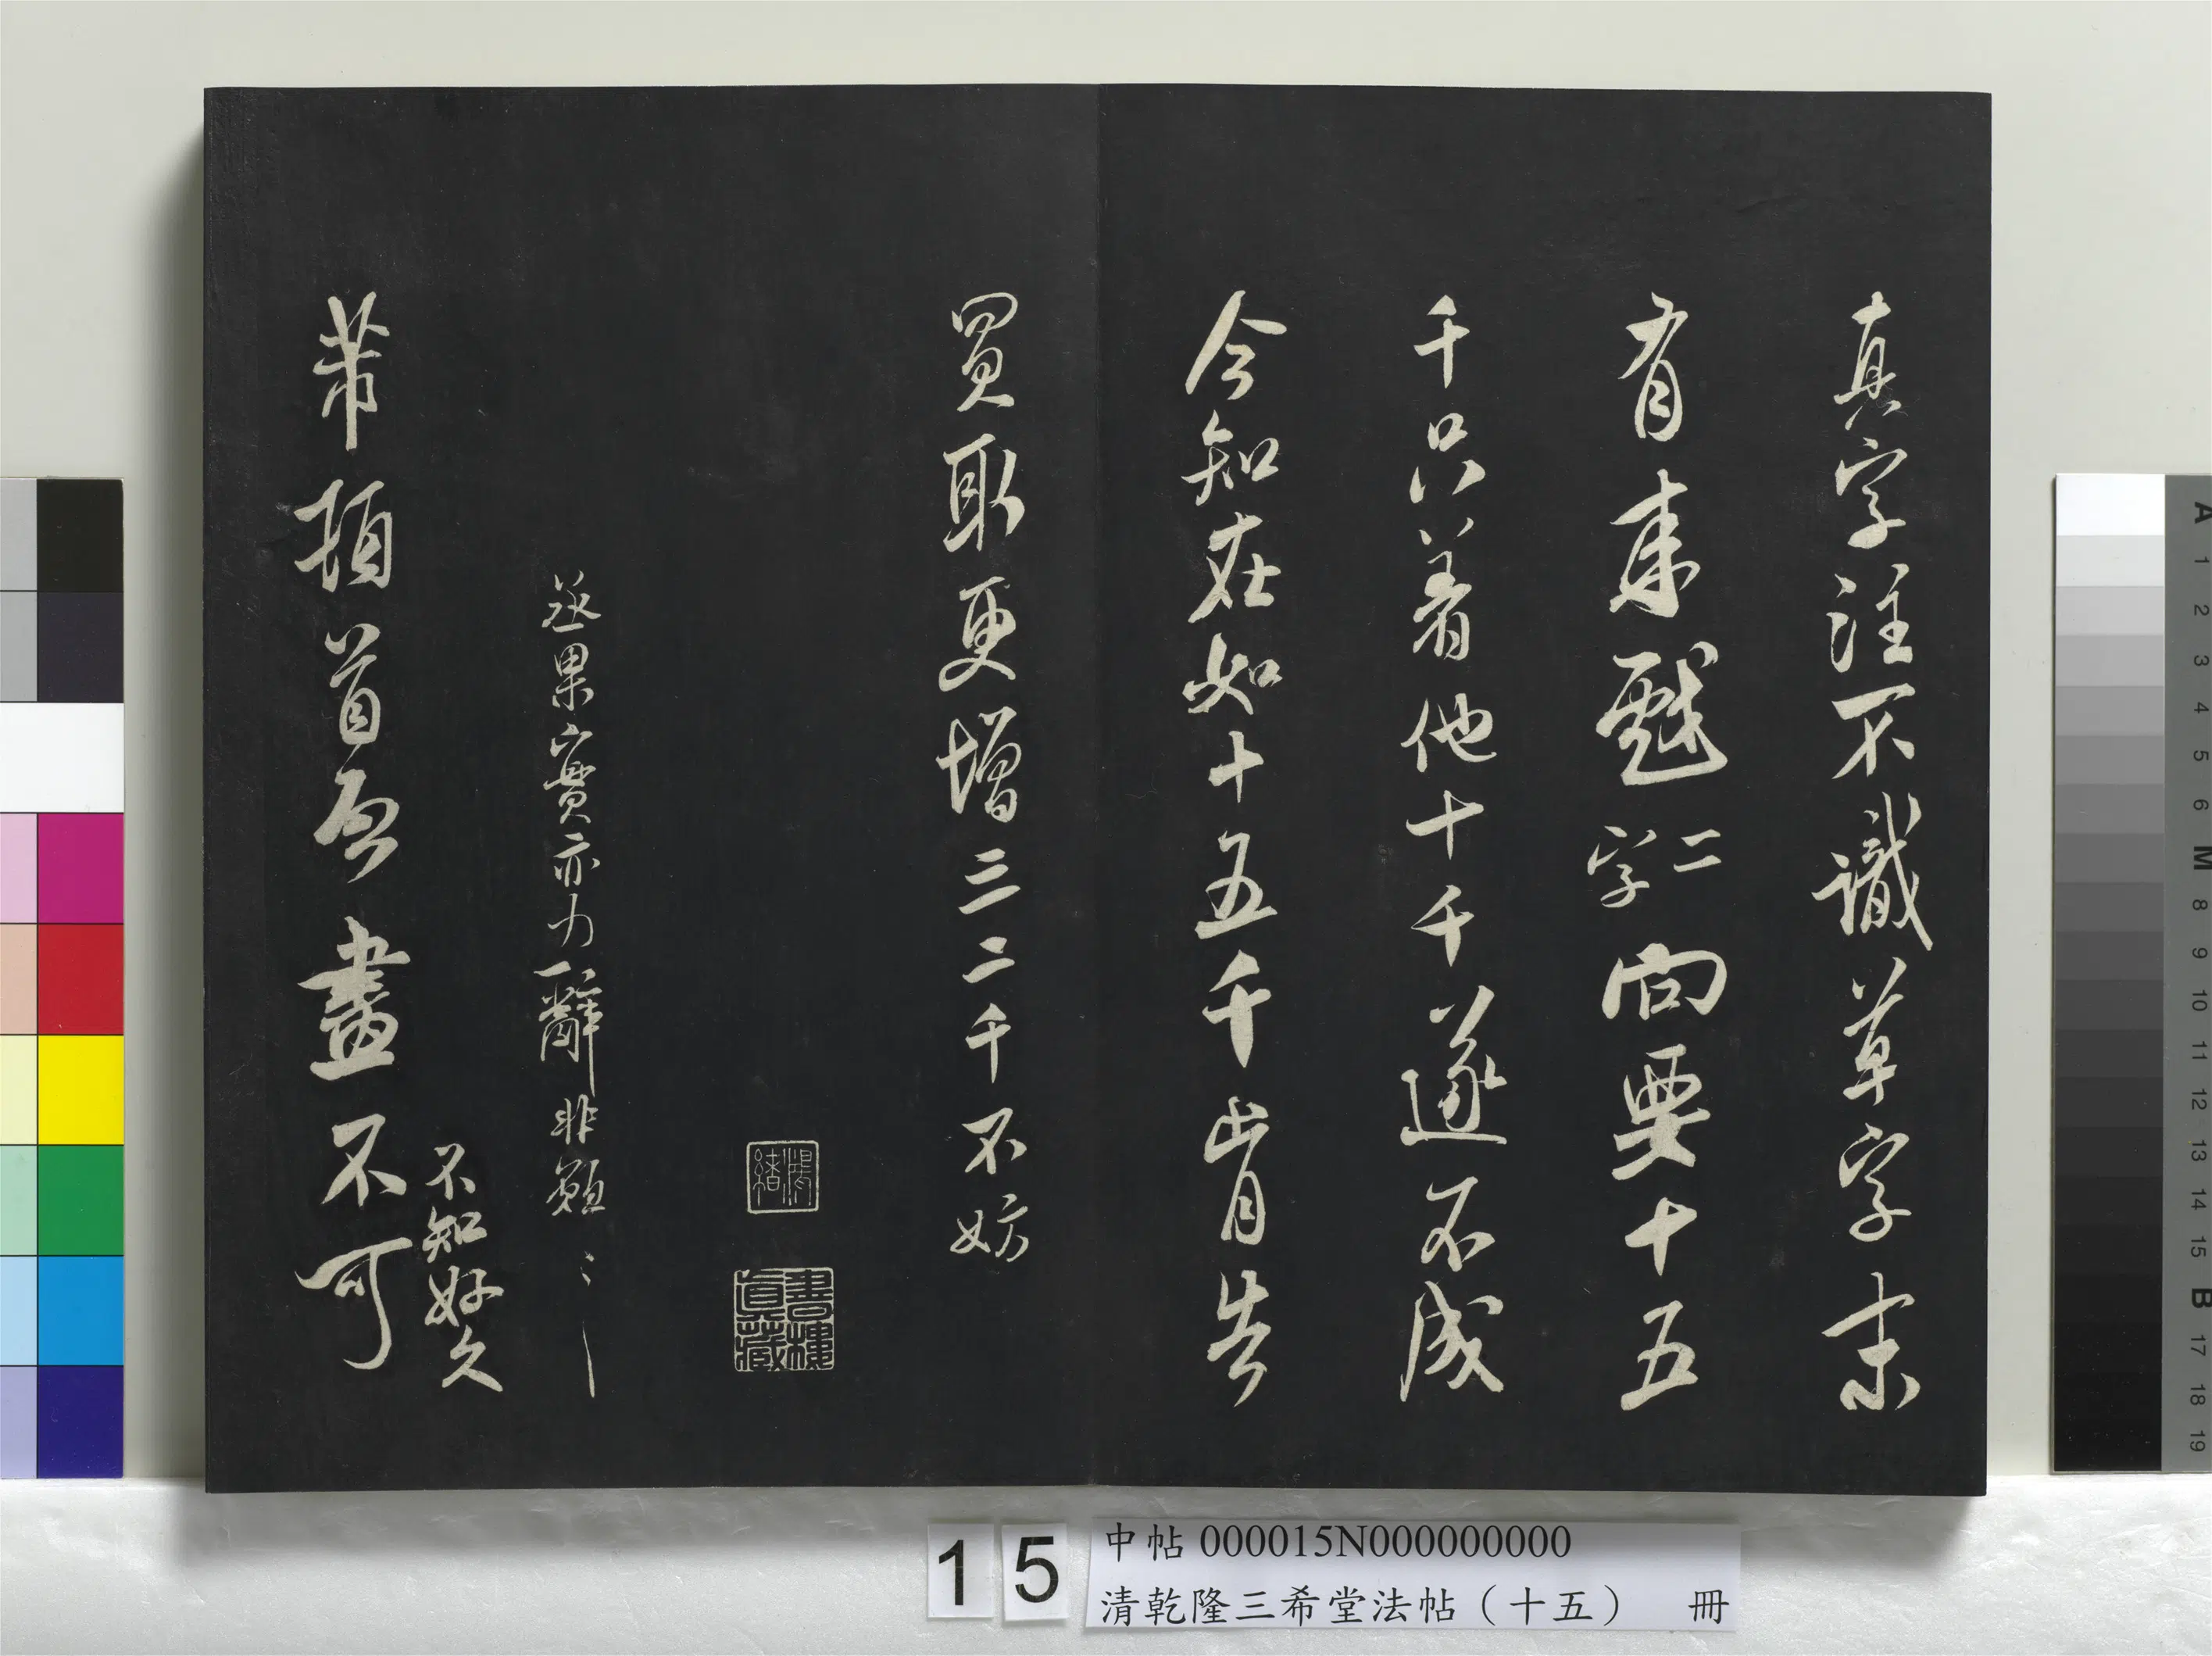 真字注不識草字末
有來戲二字向要十五
千只着他十千遂不成
今知在如十五千肯告
買取更增三二千不妨
鴻緒
書樓真藏
丞果實亦力辭非願〻
不知好久
芾頓首啓畫不可
15
中帖 000015N000000000
清乾隆三希堂法帖（十五） 冊
A 1 2 3 4 5 6 M 8 9 10 11 12 13 14 15 B 17 18 19